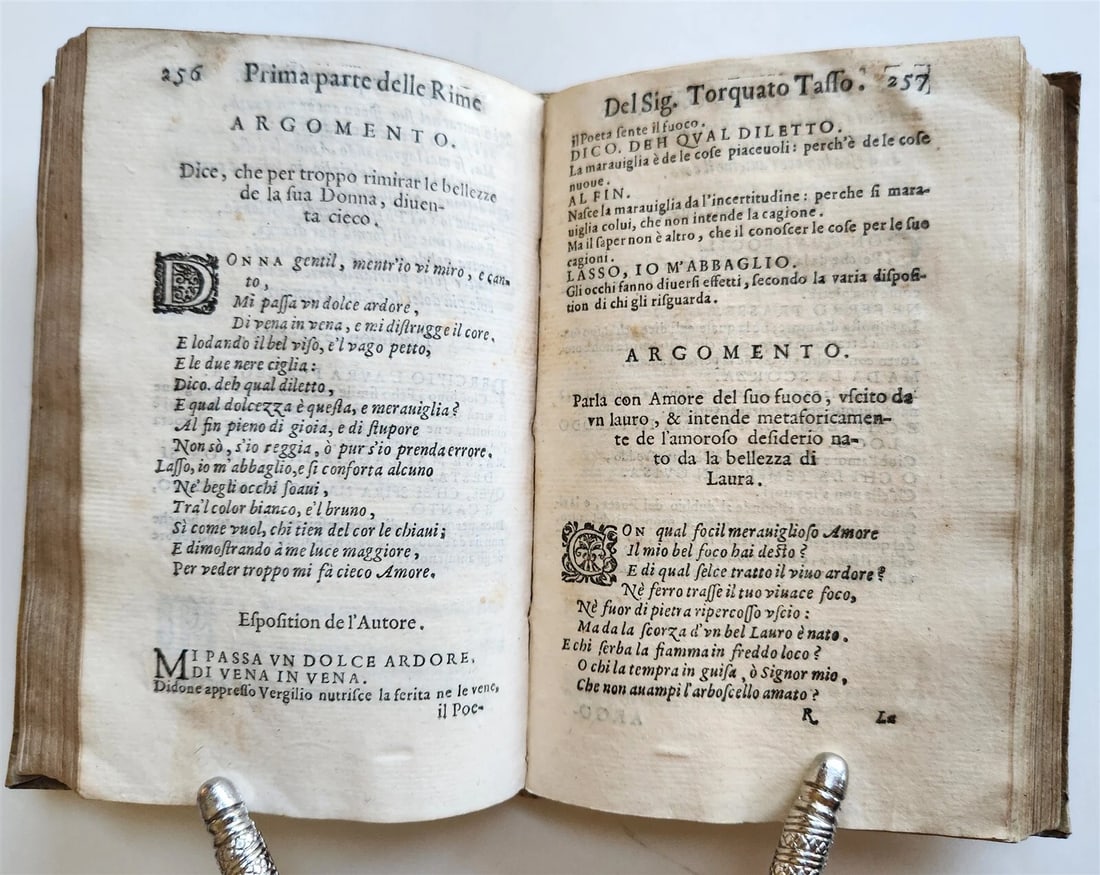 256 Prima parte delle Rime
ARGOMENTO.
Dice, che per troppo rimirar le bellezze
de la ſua Donna, diuen-
ta cieco.
DONNA gentil, mentr'io vi miro, e can-
to,
Mi paſſa vn dolce ardore,
Di vena in vena, e mi diſtrugge il core,
E lodando il bel viſo, e'l vago petto,
E le due nere ciglia:
Dico. deh qual diletto,
E qual dolcezza è queſta, e merauiglia?
Al fin pieno di gioia, e di ſtupore
Non sò, s'io reggia, ò pur s'io prenda errore.
Laſſo, io m'abbaglio, e ſi conforta alcuno
Ne' begli occhi ſoaui,
Tra'l color bianco, e'l bruno,
Sì come vuol, chi tien del cor le chiaui;
E dimoſtrando à me luce maggiore,
Per veder troppo mi fà cieco Amore.
Eſpoſition de l'Autore.
MI PASSA VN DOLCE ARDORE,
DI VENA IN VENA.
Didone appreſſo Vergilio nutriſce la ferita ne le vene,
il Poe-
Del Sig. Torquato Taſſo. 257
il Poeta ſente il fuoco.
DICO. DEH QVAL DILETTO.
La marauiglia è de le coſe piaceuoli: perch'è de le coſe
nuoue.
AL FIN.
Naſce la marauiglia da l'incertitudine: perche ſi mara-
uiglia colui, che non intende la cagione.
Ma il ſaper non è altro, che il conoſcer le coſe per le ſue
cagioni.
LASSO, IO M'ABBAGLIO.
Gli occhi fanno diuerſi effetti, ſecondo la varia diſpoſi-
tion di chi gli riſguarda.
ARGOMENTO.
Parla con Amore del ſuo fuoco, vſcito da
vn lauro, & intende metaforicamen-
te de l'amoroſo deſiderio na-
to da la bellezza di
Laura.
CON qual focil merauiglioſo Amore
Il mio bel foco hai deſto?
E di qual ſelce tratto il viuo ardore?
Nè ferro traſſe il tuo viuace foco,
Nè fuor di pietra ripercoſſo vſcio:
Ma da la ſcorza d'vn bel Lauro è nato.
E chi ſerba la fiamma in freddo loco?
O chi la tempra in guiſa, ò Signor mio,
Che non auampi l'arboſcello amato?
R La